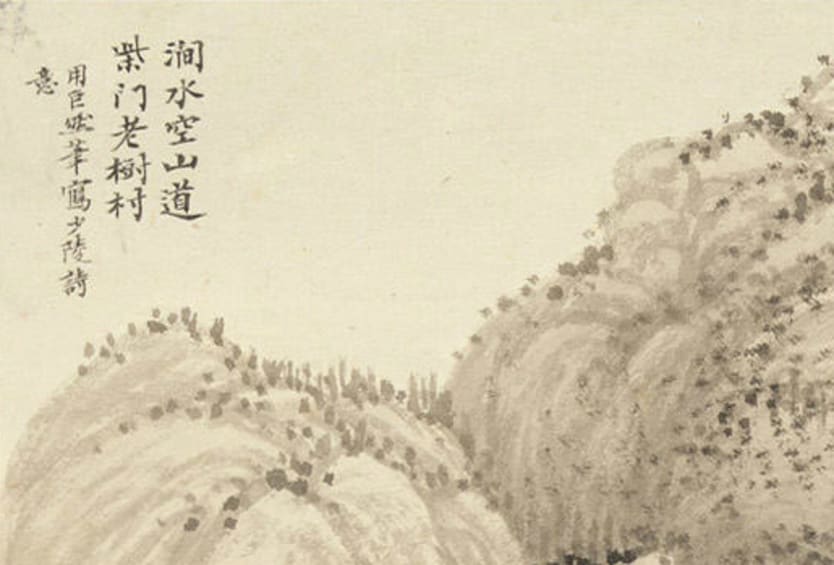 澗水空山道
柴門老樹村
用巨然筆寫少陵詩
意